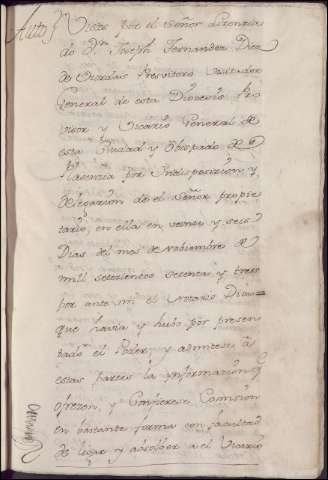 Auto Visto por el Señor Lizencia
do Dn. Joseph Fernandez Diez
de Presvitero Visitador
General de esta Diocesis Pro
visor y Vicario General de
esta Ciudad y Obispado de
Plasencia por Indisposizion y
Delegazion de el Señor propie
tario, en ella en veinte y seis
Dias del mes de Noviembre de
mill setezientos setenta y tres
por ante mi el Notario Dixo=
que havia y hubo por presen
tado el Poder, y admitese à
estas partes la ynformazion q
ofrezen, y Confierese Comision
en bastante forma con facultad
de ligar y absolber a el Vicario